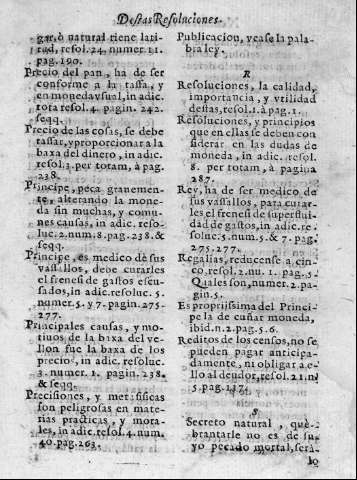 Destas Resoluciones.
gar, ò natural tiene lati-
tud, resol. 24. numer. 11.
pag. 190.
Precio del pan, ha de ser
conforme a la tassa, y
en moneda vsual, in adic.
tota resol. 4. pagin. 242.
& seqq.
Precio de las cosas, se debe
tassar, y proporcionar a la
baxa del dinero, in adic.
resol. 3. per totam, à pag.
238.
Principe, peca granemen-
te, alterando la mone-
da sin muchas, y comu-
nes causas, in adic. reso-
luc. 2. num. 8. pag. 238. &
seqq.
Principe, es medico de sus
vassallos, debe curarles
el frenesi de gastos escu-
sados, in adic. resoluc. 5.
numer. 5. y 7. pagin. 275-
277.
Principales causas, y mo-
tiuos de la baxa del ve-
llon fue la baxa de los
precios, in adic. resoluc.
3. numer. 1. pagin. 238.
& seqq.
Precisiones, y metafisicas
son peligrosas en mate-
rias practicas, y mora-
les, in adic. resol. 4. num.
40. pag. 263.
Publicacion, vease la pala-
bia ley.
R
Resoluciones, la calidad,
importancia, y vtilidad
destas, resol. 1. à pag. 1.
Resoluciones, y principios
que en ellas se deben con
siderar en las dudas de
moneda, in adic. resol.
8. per totam, à pagina
287.
Rey, ha de ser medico de
sus vassallos, para curar-
les el frenesi de superflui-
dad de gastos, in adic. re-
soluc. 5. num. 5. & 7. pag.
275. 277.
Regalias, reducense a cin-
co, resol. 2. nu. 1. pag. 5.
Quales son, numer. 2. pa-
gin. 5.
Es propriissima del Princi-
pe la de cuñar moneda,
ibid. n. 2. pag. 5. 6.
Reditos de los censos, no se
pueden pagar anticipa-
damente, ni obligar a e-
llo al deudor, resol. 21. n.
5. pag. 137.
S
Secreto natural, que-
brantarle no es de su-
yo pecado mortal, sera-
lo